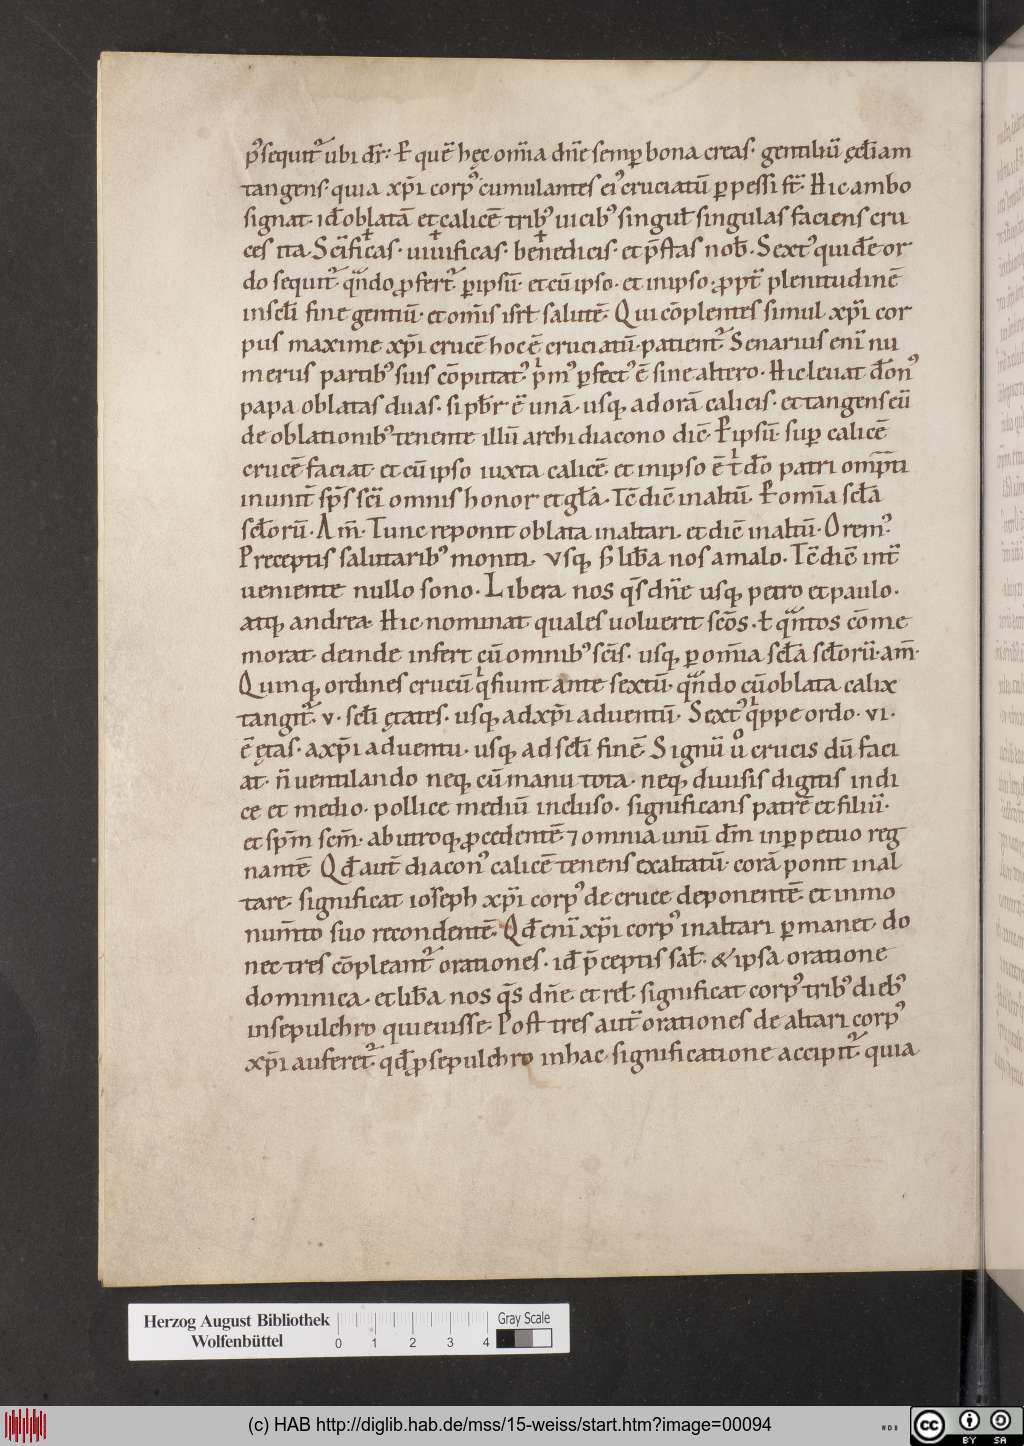 p᷒sequit᷑ ubi dr̄. P quē hęc om̄ia dn̄e semꝑ bona creas. gentiliū ęcl̄iam
tangens. quia xp̄i corp᷒ cumulantes ei᷒ cruciatū ꝑpessi st̄. Hic ambo
signat. id ē oblatā et calicē trib᷒ uicib᷒ singul̄ singulas faciens cru
ces ita. Sc̄ificas. uiuificas. benedicis. et p̄stas nob̄. Sext᷒ quidē or
do sequit᷑ qn̄do ꝓfert᷑ ꝑ ipsū. et cū ipso. et in ipso. ꝓpt̄ plenitudinē
in scl̄i fine gentiū. et om̄is isrl̄ salutē. Qui cōplentes simul xp̄i cor
pus maxime xp̄i crucē hoc ē cruciatū patient᷑. Senarius enī nu
merus partib᷒ suis cōputat᷒. pⁱm᷒ ꝑfect᷒ ē sine altero. Hic leuat dōn᷒
papa oblatas duas. si pb̄r ē unā. usq, ad orā calicis. et tangens eū
de oblationib᷒ tenente illū archidiacono diē. P ipsū. suꝑ calicē
crucē faciat. et cū ipso iuxta calicē. et in ipso ē tⁱ do patri omp̄ti
in unit̄ sp̄s sc̄i omnis honor et gl̄a. Tē diē in altū. P om̄ia scl̄a
scl̄orū. Am̄. Tunc reponit oblata in altari. et diē in altū. Orem᷒.
Preceptis salutarib᷒ moniti. usq, s̄ lib̄a nos a malo. Tē diē int̄
ueniente nullo sono. Libera nos qs̄ dn̄e usq, petro et paulo.
atq, andrea. Hic nominat quales uoluerit scōs. ł qn̄tos cōme
morat. deinde infert cū omnib᷒ scīs. usq, ꝑ om̄ia scl̄a scl̄orū. am̄.
Quinq, ordines crucū qⁱ fiunt ante sextū. qn̄do cū oblata calix
tangit᷑. v. scl̄i ętates. usq, ad xp̄i aduentū. Sext᷒ qⁱppe ordo. vi.
ē ętas. a xp̄i aduentu. usq, ad scl̄i finē. Signū ů crucis dū faci
at. n̄ uentilando neq, cū manu tota. neq, diuisis digitis indi
ce et medio. pollice mediū incluso. significans patrē et filiū.
et sp̄m scm̄. ab utroq, ꝓcedentē. ⁊ omnia unū dm̄ in ꝑpetuo reg
nantē. Qđ aut̄ diacon᷒ calicē tenens exaltatū. corā ponit in al
tare. significat ioseph xp̄i corp᷒ de cruce deponentē. et in mo
num̄to suo recondentē. Qđ enī xp̄i corp᷒ in altari ꝑmanet. do
nec tres cōpleant᷑ orationes. id p̄ceptis sal̄. & ipsa oratione
dominica. et lib̄a nos qs̄ dn̄e. et rel̄. significat corp᷒ trib᷒ dieb᷒
in sepulchro quieuisse. Post tres aut̄ orationes de altari corp᷒
xp̄i auferet᷑. qđ ꝓ sepulchro in hac significatione accipit᷑. quia
Herzog August Bibliothek
Wolfenbüttel
0 1 2 3 4
Gray Scale
(c) HAB http://diglib.hab.de/mss/15-weiss/start.htm?image=00094
WDB
cc BY SA